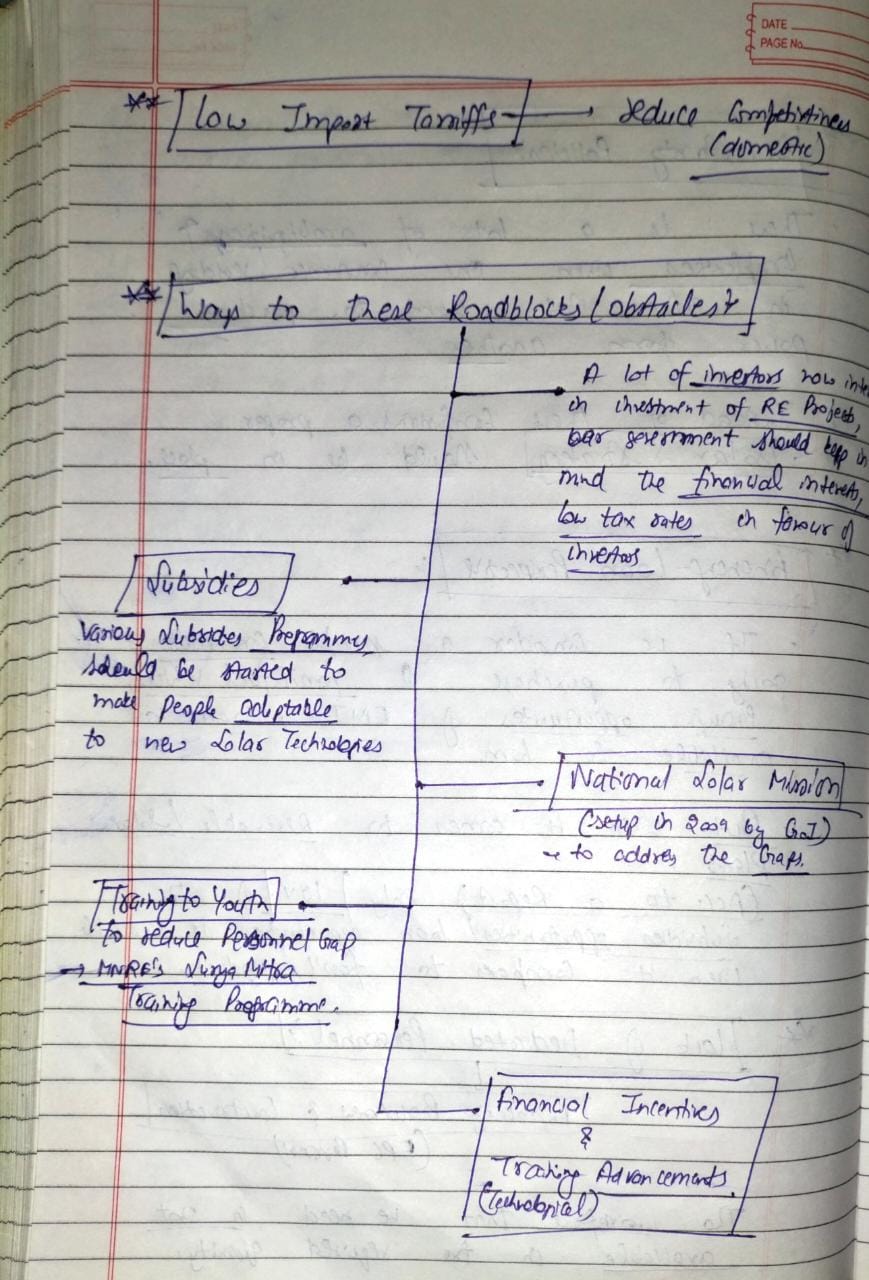 DATE
PAGE No.
** Low Import Tarriffs → reduce Competitiveness
(domestic)
** Ways to these Roadblocks/obstacles:
A lot of investors now inte
in investment of RE Projects,
government should keep in
mind the financial interests,
low tax rates in favour of
investors
Subsidies
Various Subsides Programmes
should be started to
make people adoptable
to new Solar Technologies
National Solar Mission
(setup in 2009 by GoI)
→ to address the Gaps.
Training to Youth
to reduce Personnel Gap
→ MNRE's Surya Mitra
Training Programme.
Financial Incentives
&
Training Advancements
(Technological)